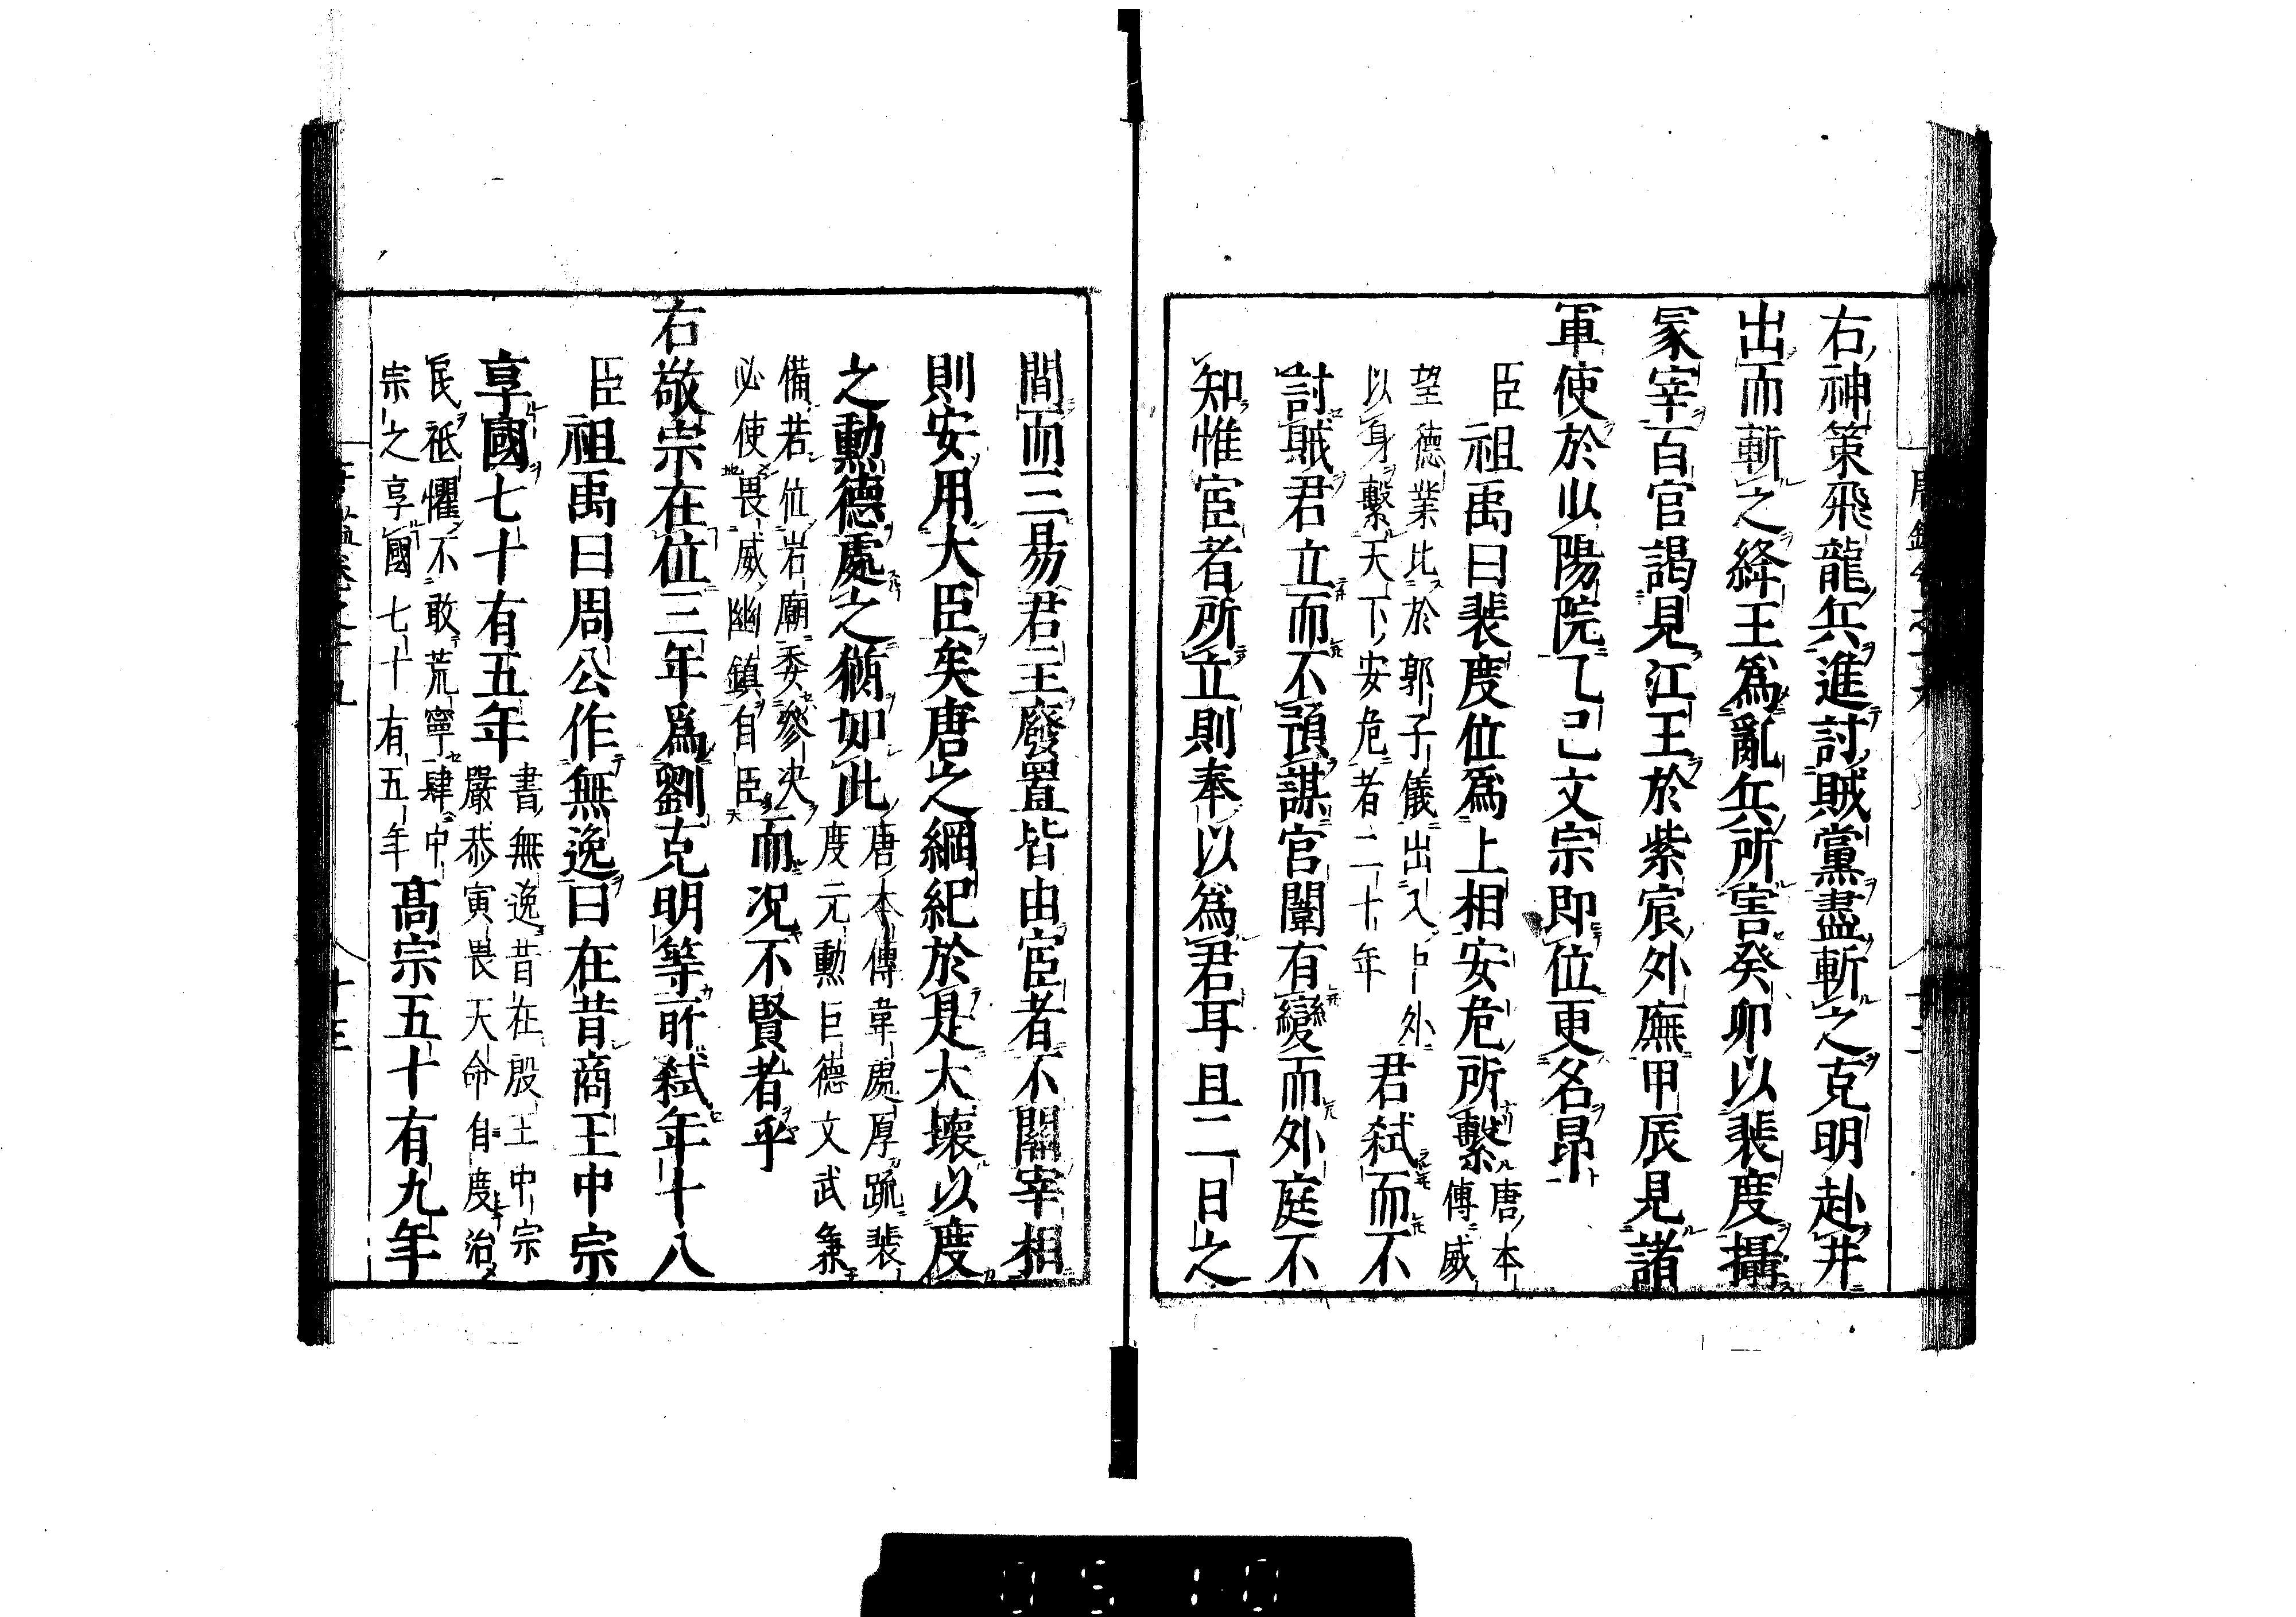 右神策飛龍兵進討賊黨盡斬之克明赴井
出而斬之絳王爲亂兵所害癸卯以裴度攝
冢宰百官謁見江王於紫宸外廡甲辰見諸
軍使於少陽院乙巳文宗即位更名昂
臣祖禹曰裴度位爲上相安危所繫唐本傳威
望德業比於郭子儀出入中外
以身繫天下安危者二十年君弑而不
討賊君立而不預謀官闈有變而外庭不
知惟宦者所立則奉以爲君耳且二日之
間而三易君王廢置皆由宦者不關宰相
則安用大臣矣唐之綱紀於是大壞以度
之勳德處之猶如此唐本傳韋處厚疏裴
度元勳巨德文武兼
備若位岩廟委參决
必使畏威幽鎮自臣而况不賢者乎
右敬宗在位三年爲劉克明等所弑年十八
臣祖禹曰周公作無逸曰在昔商王中宗
享國七十有五年書無逸昔在殷王中宗
嚴恭寅畏天命自度治
民祗懼不敢荒寧肆中
宗之享國七十有五年高宗五十有九年
十三